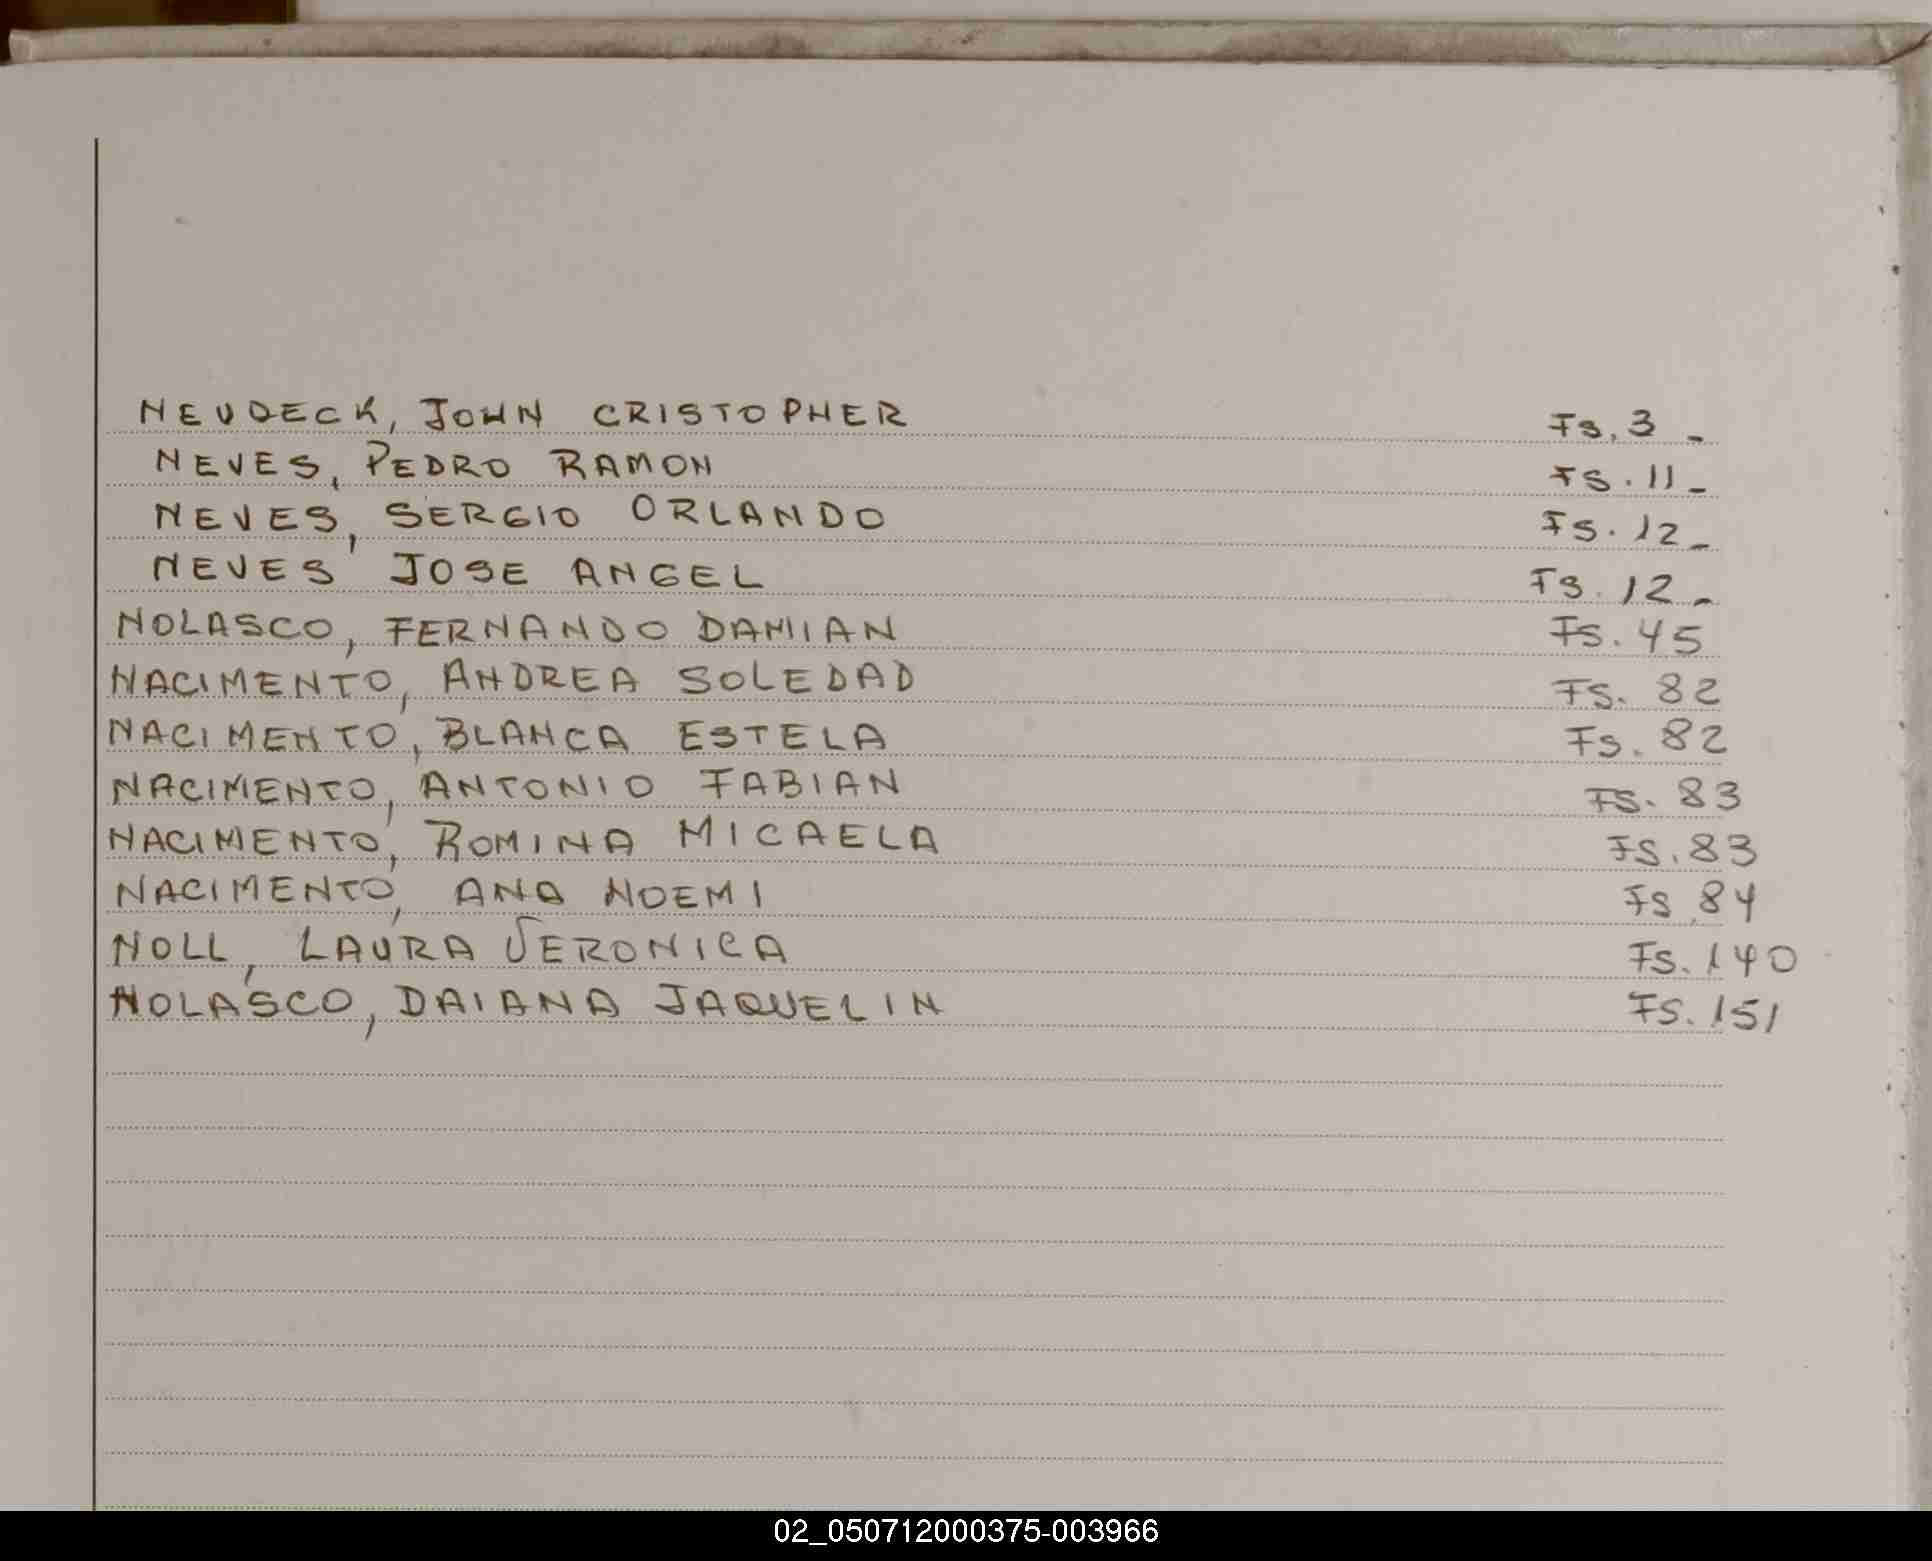 NEUDECK, JOHN CRISTOPHER Fs. 3 -
NEVES, PEDRO RAMON Fs. 11 -
NEVES, SERGIO ORLANDO Fs. 12 -
NEVES JOSE ANGEL Fs. 12 -
NOLASCO, FERNANDO DAMIAN Fs. 45
NACIMENTO, ANDREA SOLEDAD Fs. 82
NACIMENTO, BLANCA ESTELA Fs. 82
NACIMENTO, ANTONIO FABIAN Fs. 83
NACIMENTO, ROMINA MICAELA Fs. 83
NACIMENTO, ANA NOEMI Fs. 84
NOLL, LAURA VERONICA Fs. 140
NOLASCO, DAIANA JAQUELIN Fs. 151
02_050712000375-003966